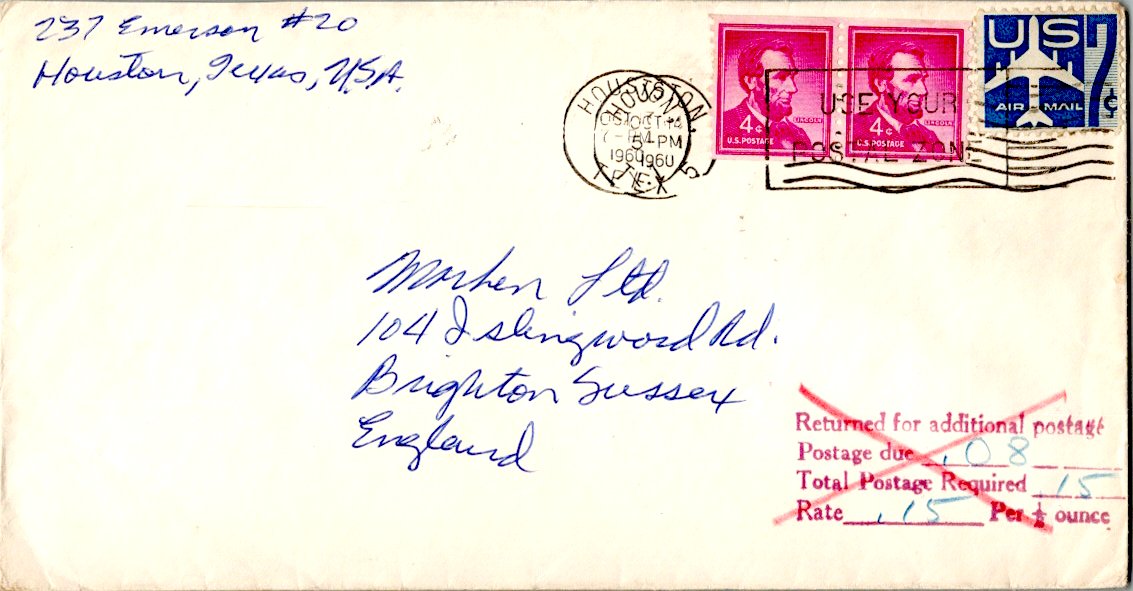 237 Emerson #20
Houston, Texas, USA.
4¢ LINCOLN
U.S. POSTAGE
4¢ LINCOLN
U.S. POSTAGE
US 7¢
AIR MAIL
HOUSTON,
OCT 14
5 - PM
1960
TEX
USE YOUR
POSTAL ZONE
Morhen Ltd.
104 Islingword Rd.
Brighton Sussex
England
Returned for additional postage
Postage due .08
Total Postage Required .15
Rate .15 Per ½ ounce